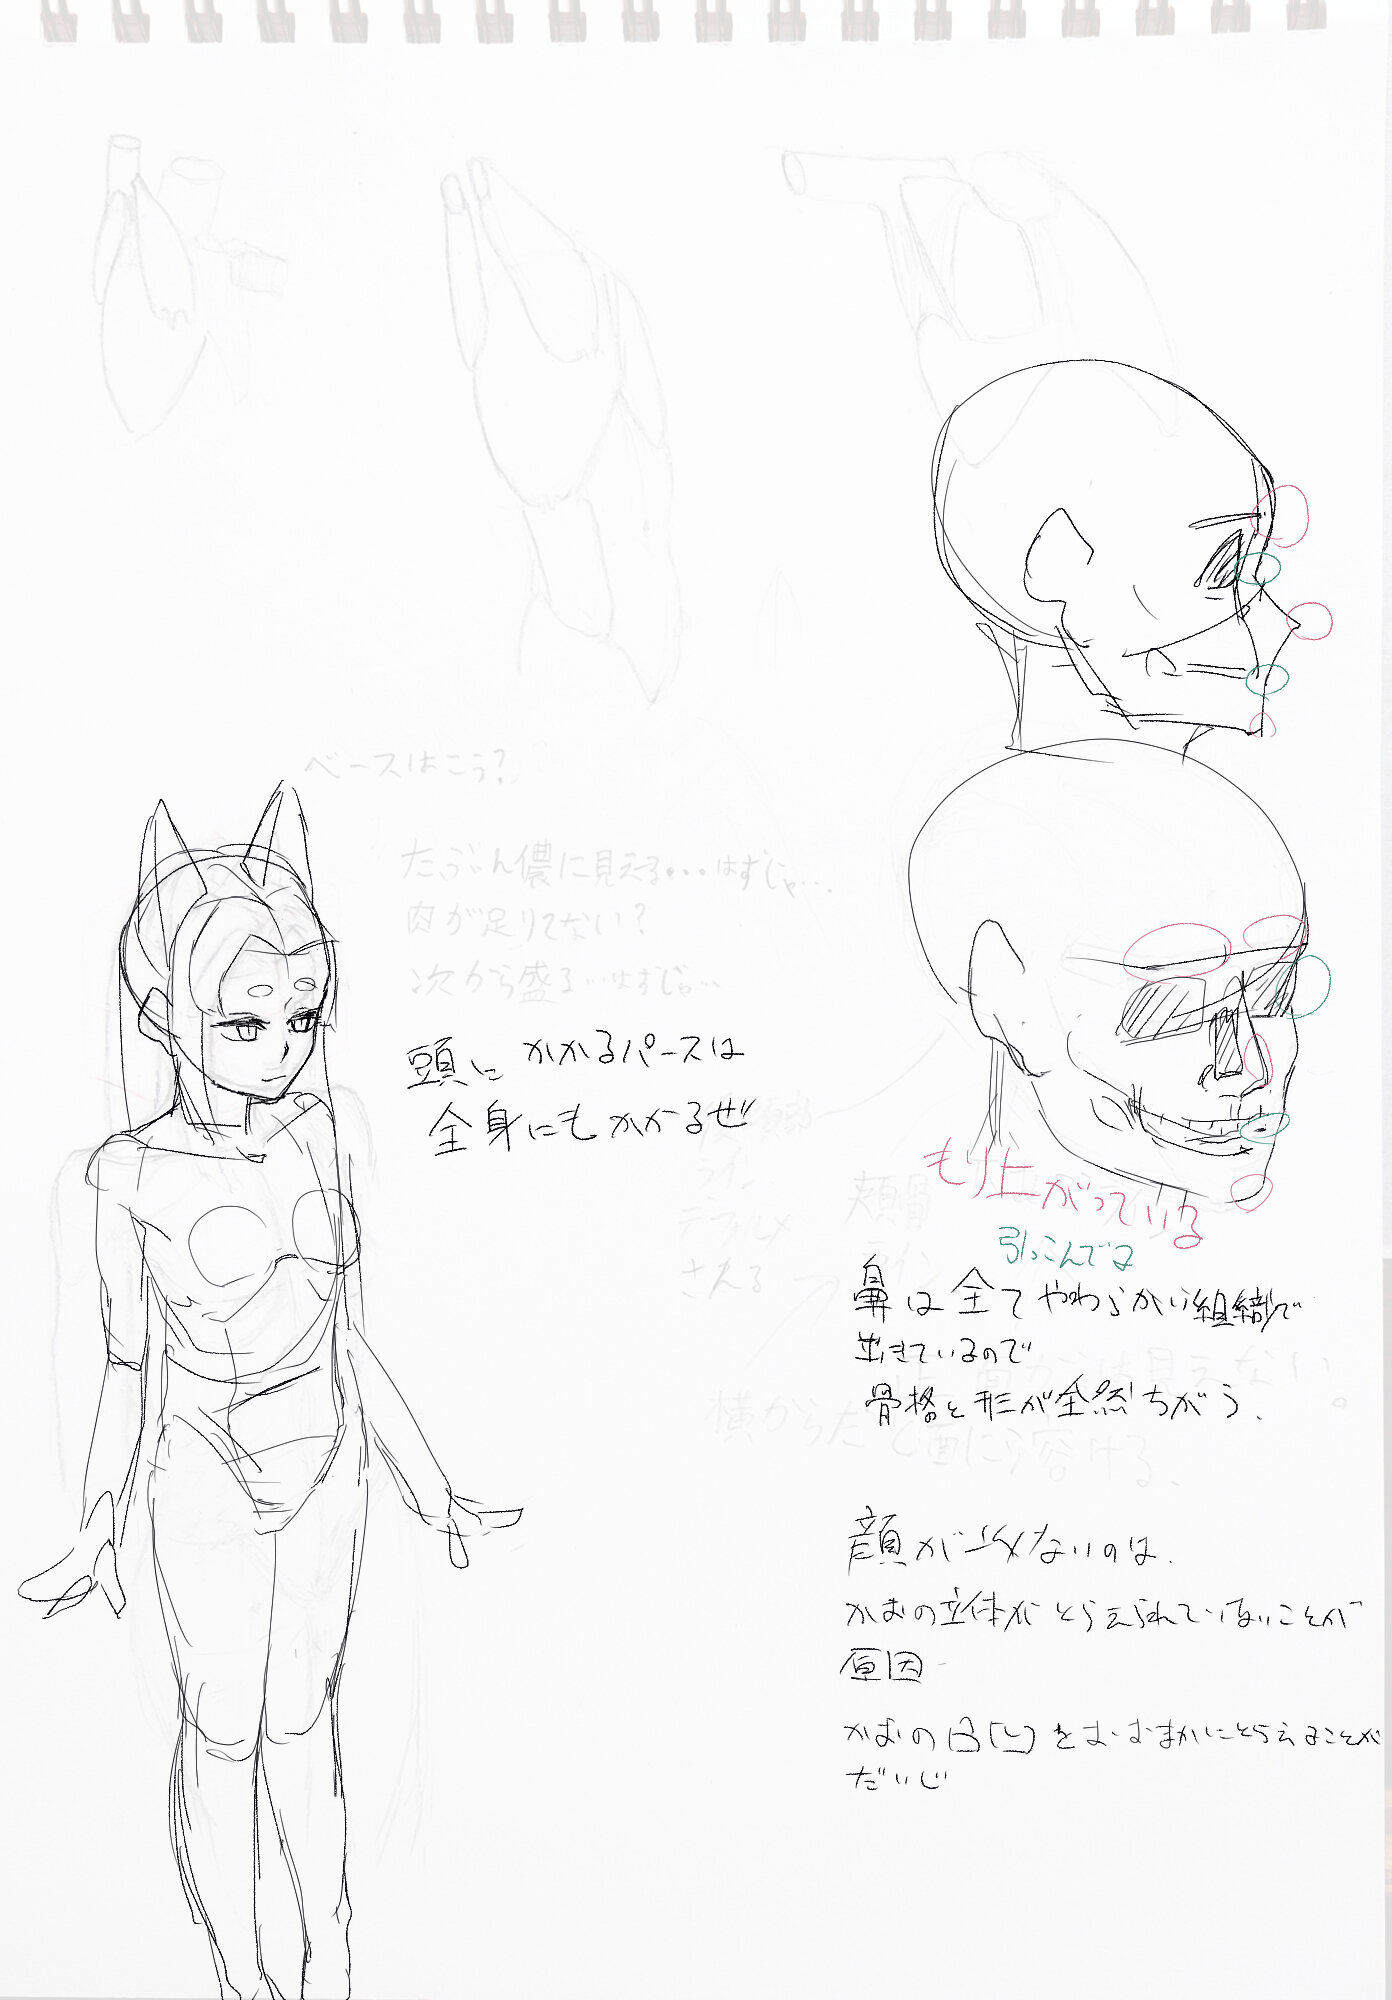 ベースはこう?
たぶん儂に見える・・・はずじゃ...
肉が足りてない?
次から盛るはずじゃ...
頭にかかるパースは
全身にもかかるぜ
もり上がっている
引っこんでる
頬骨
さえる
鼻は全てやわらかい組織で
出きているので
骨格と形が全然ちがう.
見えない。
横からだと
溶ける、
顔が
かおの立体がとらえられていないことが
原因
かおの凸凹をおおまかにとらえることが
だいじ